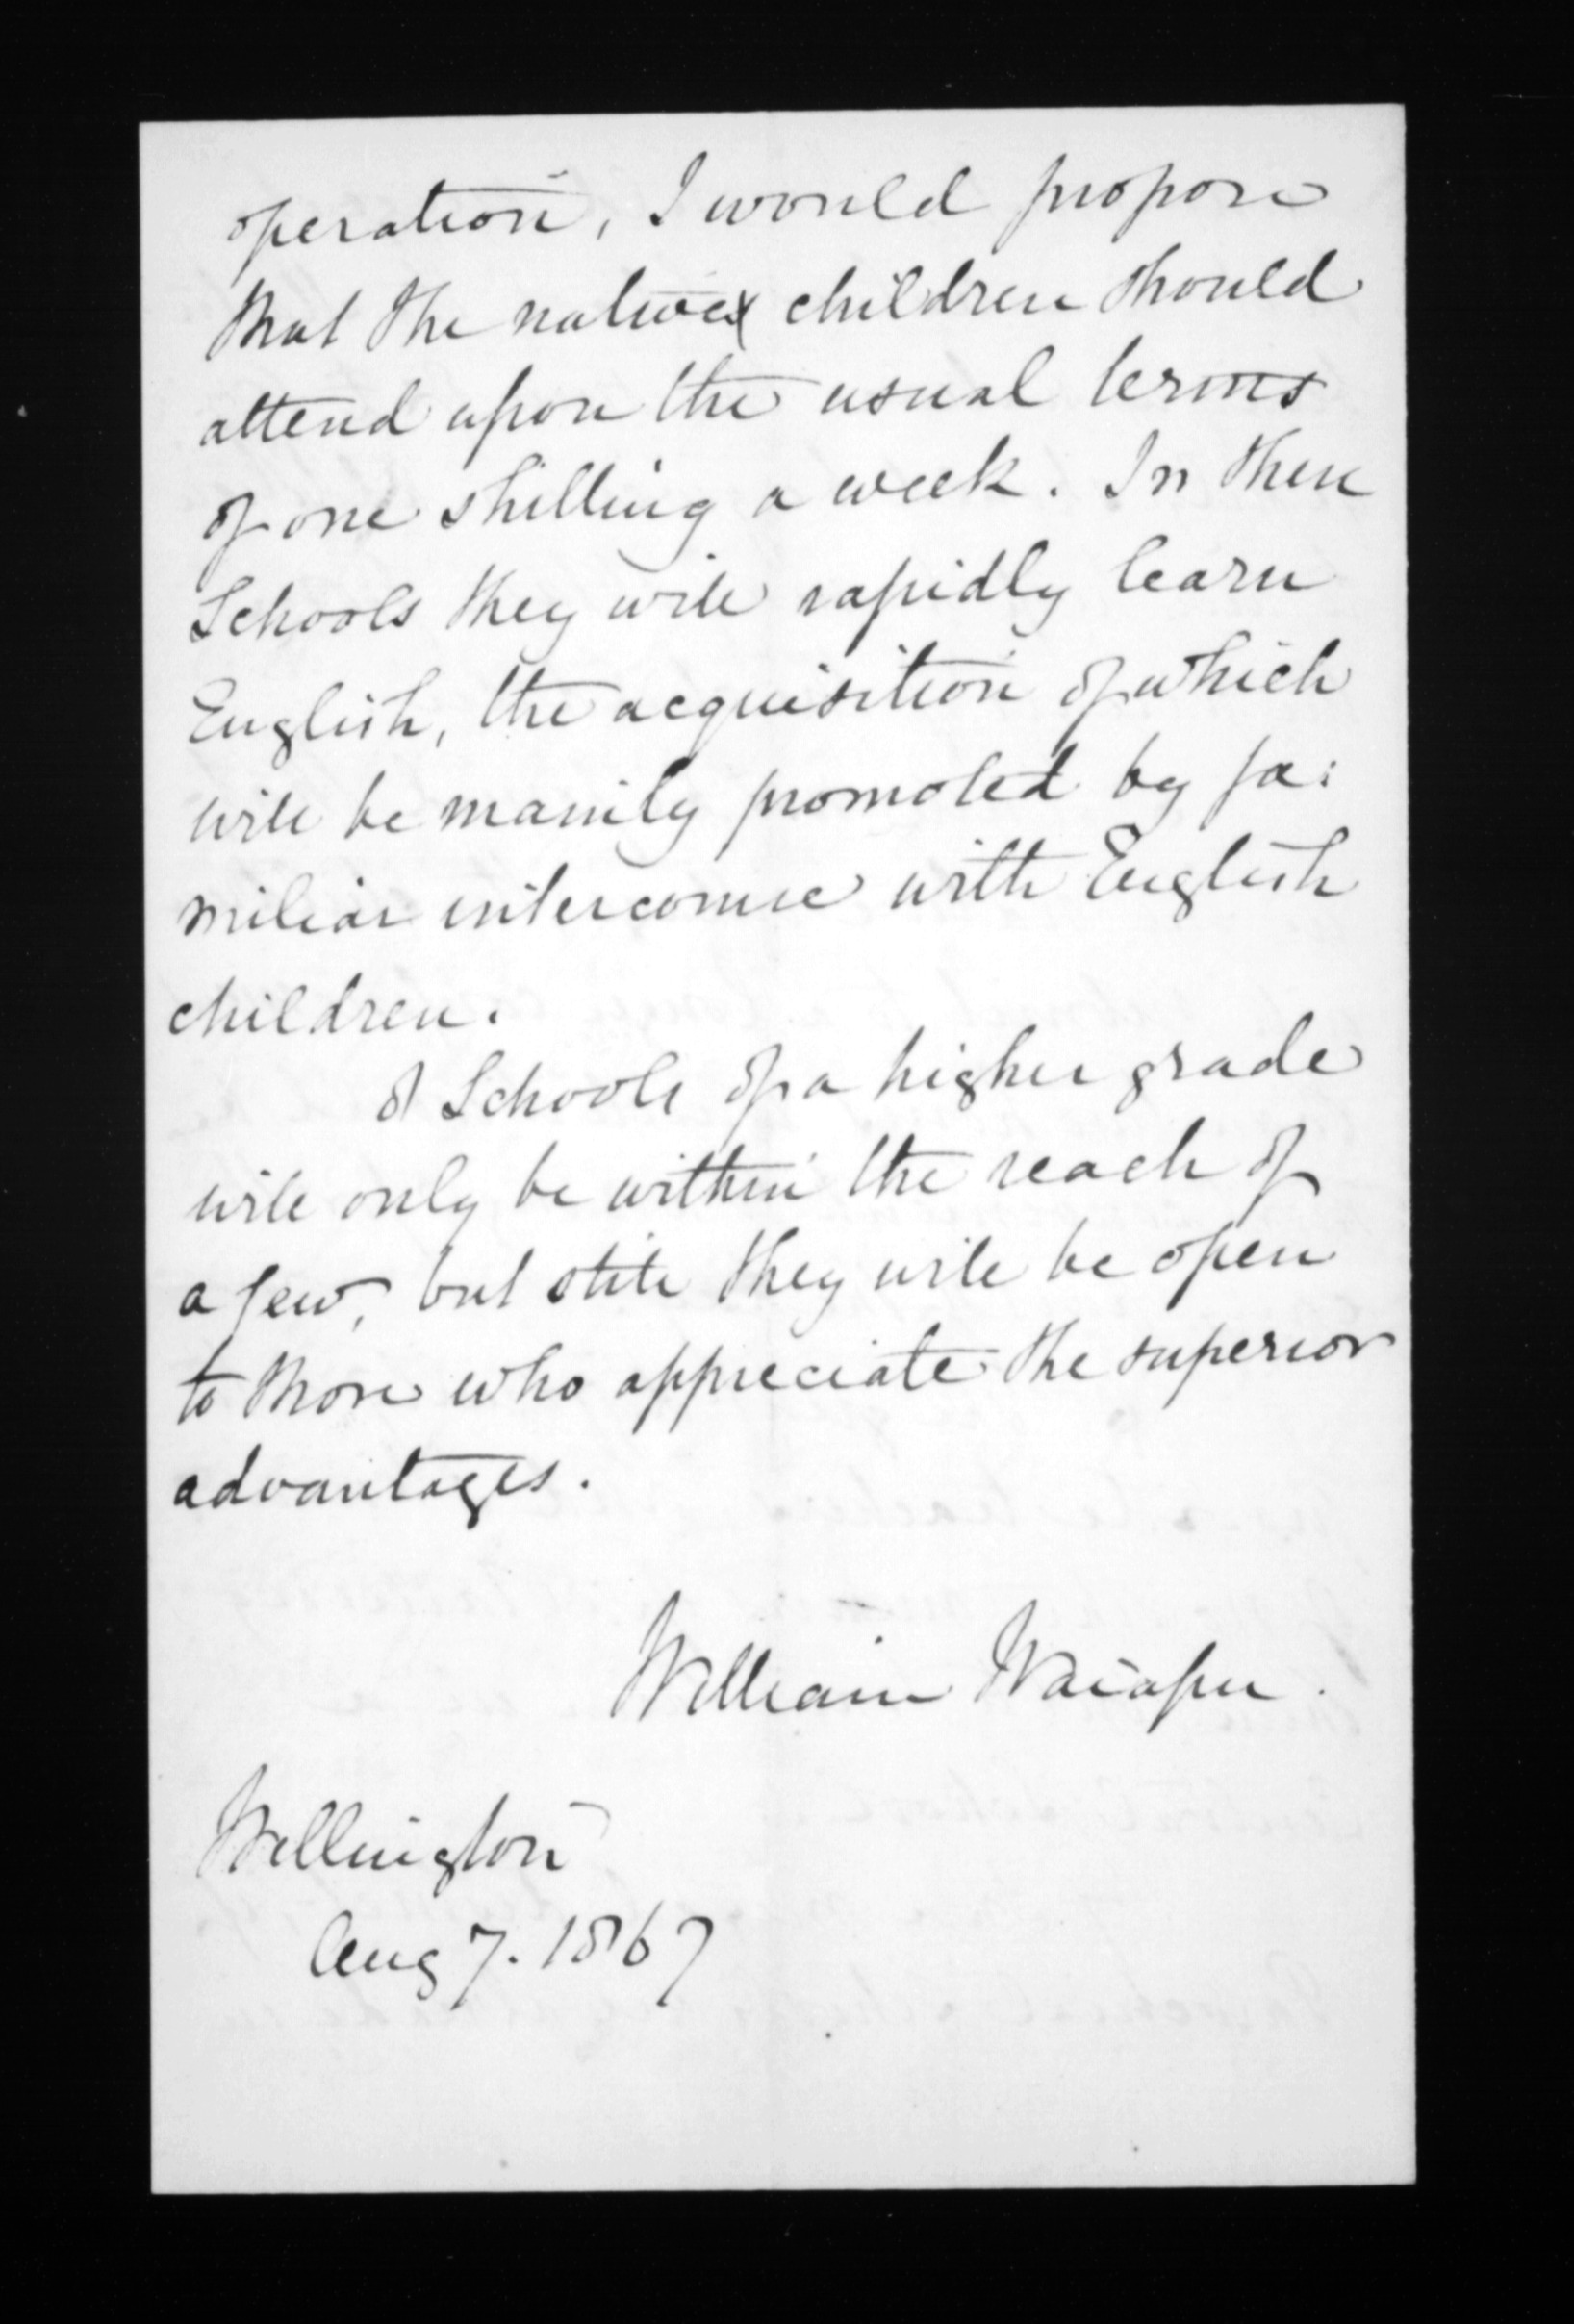 operation, I would propose
that the native children should
attend upon the usual terms
of one shilling a week. In these
Schools they will rapidly learn
English, the acquisition of which
will be mainly promoted by fa:
miliar intercourse with English
children.
8 Schools of a higher grade
will only be within the reach of
a few, but still they will be open
to those who appreciate the superior
advantages.
William Waiapu.
Wellington
Aug 7. 1867